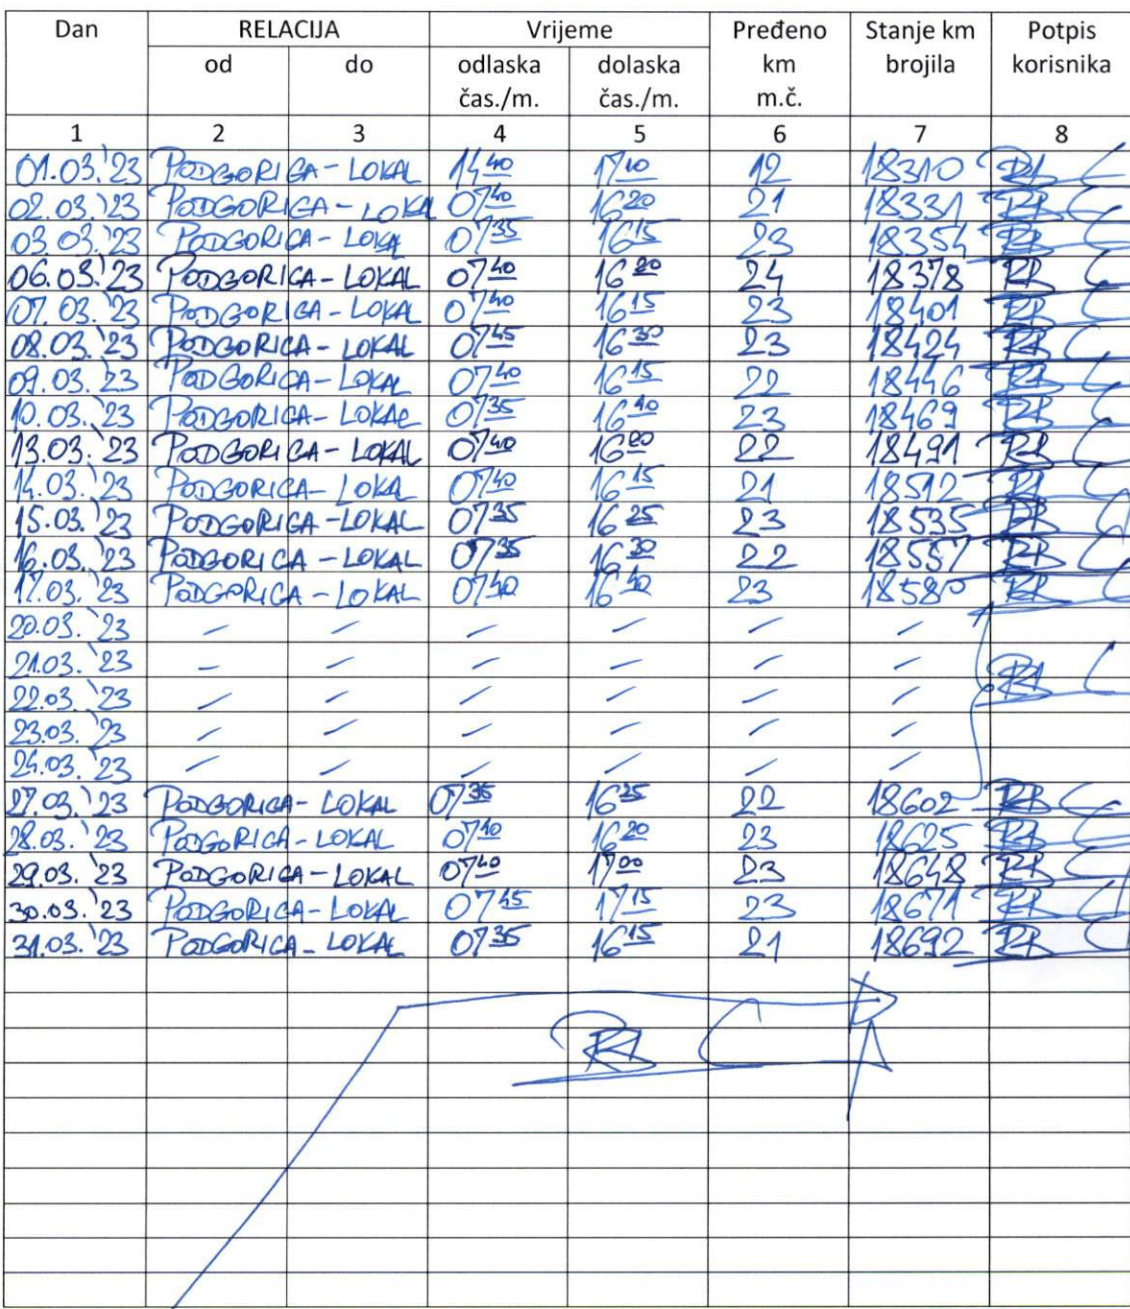 Dan RELACIJA Vrijeme Pređeno km m.č. Stanje km brojila Potpis korisnika
od do odlaska čas./m. dolaska čas./m.
1 2 3 4 5 6 7 8
01.03.'23 PODGORICA - LOKAL 14 40 17 10 12 18310
02.03.'23 PODGORICA - LOKAL 07 40 16 20 21 18331
03.03.'23 PODGORICA - LOKAL 07 35 16 15 23 18354
06.03.'23 PODGORICA - LOKAL 07 40 16 20 24 18378
07.03.'23 PODGORICA - LOKAL 07 40 16 15 23 18401
08.03.'23 PODGORICA - LOKAL 07 45 16 30 23 18424
09.03.'23 PODGORICA - LOKAL 07 40 16 15 22 18446
10.03.'23 PODGORICA - LOKAL 07 35 16 10 23 18469
13.03.'23 PODGORICA - LOKAL 07 40 16 20 22 18491
14.03.'23 PODGORICA - LOKAL 07 40 16 15 21 18512
15.03.'23 PODGORICA - LOKAL 07 35 16 25 23 18535
16.03.'23 PODGORICA - LOKAL 07 35 16 30 22 18557
17.03.'23 PODGORICA - LOKAL 07 40 16 40 23 18580
20.03.'23 - - - - - -
21.03.'23 - - - - - -
22.03.'23 - - - - - -
23.03.'23 - - - - - -
24.03.'23 - - - - - -
27.03.'23 PODGORICA - LOKAL 07 35 16 25 22 18602
28.03.'23 PODGORICA - LOKAL 07 40 16 20 23 18625
29.03.'23 PODGORICA - LOKAL 07 40 17 00 23 18648
30.03.'23 PODGORICA - LOKAL 07 45 17 15 23 18671
31.03.'23 PODGORICA - LOKAL 07 35 16 15 21 18692